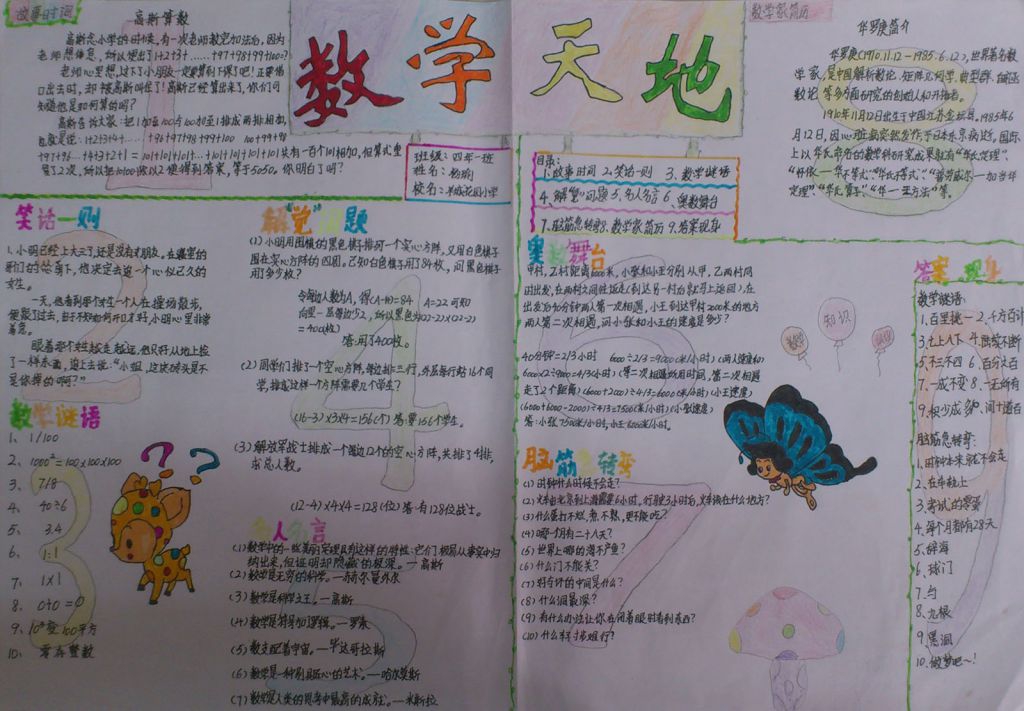 故事时间
高斯算数
高斯念小学的时候，有一次老师教完加法后，因为
老师想休息，所以便出1+2+3+……+97+98+99+100=?
老师心里想，这下子小朋友一定要算到下课了吧！正要借
口出去时，却被高斯叫住了！高斯已经算出来了，你们可
知道他是如何算的吗？
高斯告诉大家：把1加至100与100加至1排成两排相加，
也就是说：1+2+3+4……+96+97+98+99+100 100+99+98
+97+96…+4+3+2+1=101+101+101+…+101+101+101+101共有一百个101相加，但算式重
复了2次，所以把10100除以2便得到答案，等于5050。你明白了吗？
数学天地
班级：四年一班
姓名：
校名：花园小学
目录：
1、故事时间 2、笑话一则 3、数学谜语
4、解“觉”问题 5、名人名言 6、奥数舞台
7、脑筋急转弯 8、数学家简历 9、答案现身
数学家简历
华罗庚简介
华罗庚（1910.11.12－1985.6.12），世界著名数
学家，是中国解析数论、矩阵几何学、典型群、自函
数论等多方面研究的创始人和开拓者。
1910年11月12日出生于中国江苏金坛县。1985年6
月12日，因心脏病突然发作于日本东京病逝，国际
上以华氏命名的数学科研究成果就有“华氏定理”、
“怀依—华不等式”、“华氏不等式”、“普劳威尔—加当华
定理”、“华氏算子”、“华—王方法”等。
笑话一则
1、小明已经上大三了，还是没有女朋友。在寝室的
哥们的怂恿下，他决定去追一个心仪已久的
女生。
一天，他看到那个女生一个人在操场散步，
便跟了过去，由于不知如何开口才好，小明心里非常
着急。
眼看那个女生越走越远，他只好从地上捡
了一样东西，追上去说：“小姐，这块砖头是不
是你掉的啊？”
数学谜语
1、 1/100
2、 1000²=100×100×100
3、 7/8
4、 40÷6
5、 3.4
6、 1:1
7、 1×1
8、 0+0=0
9、
10、 零存整数
解“觉”问题
（1）小明用围棋的黑色棋子排列一个实心方阵，又用白色棋子
围在实心方阵的四周。已知白色棋子用了84枚，问黑色棋子
用了多少枚？
令每边人数为A，得(A-1)×4=84 A=22可知
向里一层每边少2，所以黑色为(22-2)×(22-2)
=400(枚)
答：用了400枚。
（2）同学们排了一个空心方阵，每边排三行，外层每行站16个同
学，排成这样一个方阵需要几个学生？
(16-3)×3×4=156(个) 答：要156个学生。
（3）解放军战士排成一个每边12个的空心方阵，共排了4排，
求总人数。
(12-4)×4×4=128(位) 答：有128位战士。
名人名言
（1）数学中的一些美丽定理具有这样的特性：它们极易从事实中归
纳出来，但证明却隐藏的极深。—高斯
（2）数学是无穷的科学。—赫尔曼外尔
（3）数学是科学之王。—高斯
（4）数学是符号加逻辑。—罗素
（5）数支配着宇宙。—毕达哥拉斯
（6）数学是一种别具匠心的艺术。—哈尔莫斯
（7）数学是人类的思考中最高的成就。—米斯拉
奥数舞台
甲村、乙村距离6000米，小张和小王分别从甲、乙两村同
时出发，在两村之间往返走（到达另一村后就马上返回），在
出发后40分钟两人第一次相遇，小王到达甲村后2000米的地方
两人第二次相遇，问小张和小王的速度是多少？
40分钟=2/3小时 6000÷2/3=9000(米/小时)(两人速度和)
6000×2÷9000=4/3(小时)(第二次相遇所用时间，第二次相遇
走了2个距离)(6000+2000)÷4/3=6000(米/小时)(小王速度)
(6000+6000-2000)÷4/3=7500(米/小时)(小张速度)
答：小张7500米/小时，小王6000米/小时。
脑筋急转弯
（1）时钟什么时候不会走？
（2）火车由北京到上海需要6小时，行驶3小时后，火车该在什么地方？
（3）什么蛋打不烂，煮不熟，更不能吃？
（4）哪个月有二十八天？
（5）世界上哪的海不产鱼？
（6）什么门不能关？
（7）好奇怀的中间是什么？
（8）什么洞最深？
（9）有什么办法让你在闭着眼时看到东西？
（10）什么样
知识
答案现身
数学谜语：
1、百里挑一 2、千方百计
3、七上八下 4、
5、不三不四 6、百分之百
7、一成不变 8、一无所有
9、积少成多 10、
脑筋急转弯：
1、时钟本来就不会走
2、在车轨上
3、考试的零蛋
4、每个月都有28天
5、辞海
6、球门
7、与
8、
9、黑洞
10、做梦吧~！